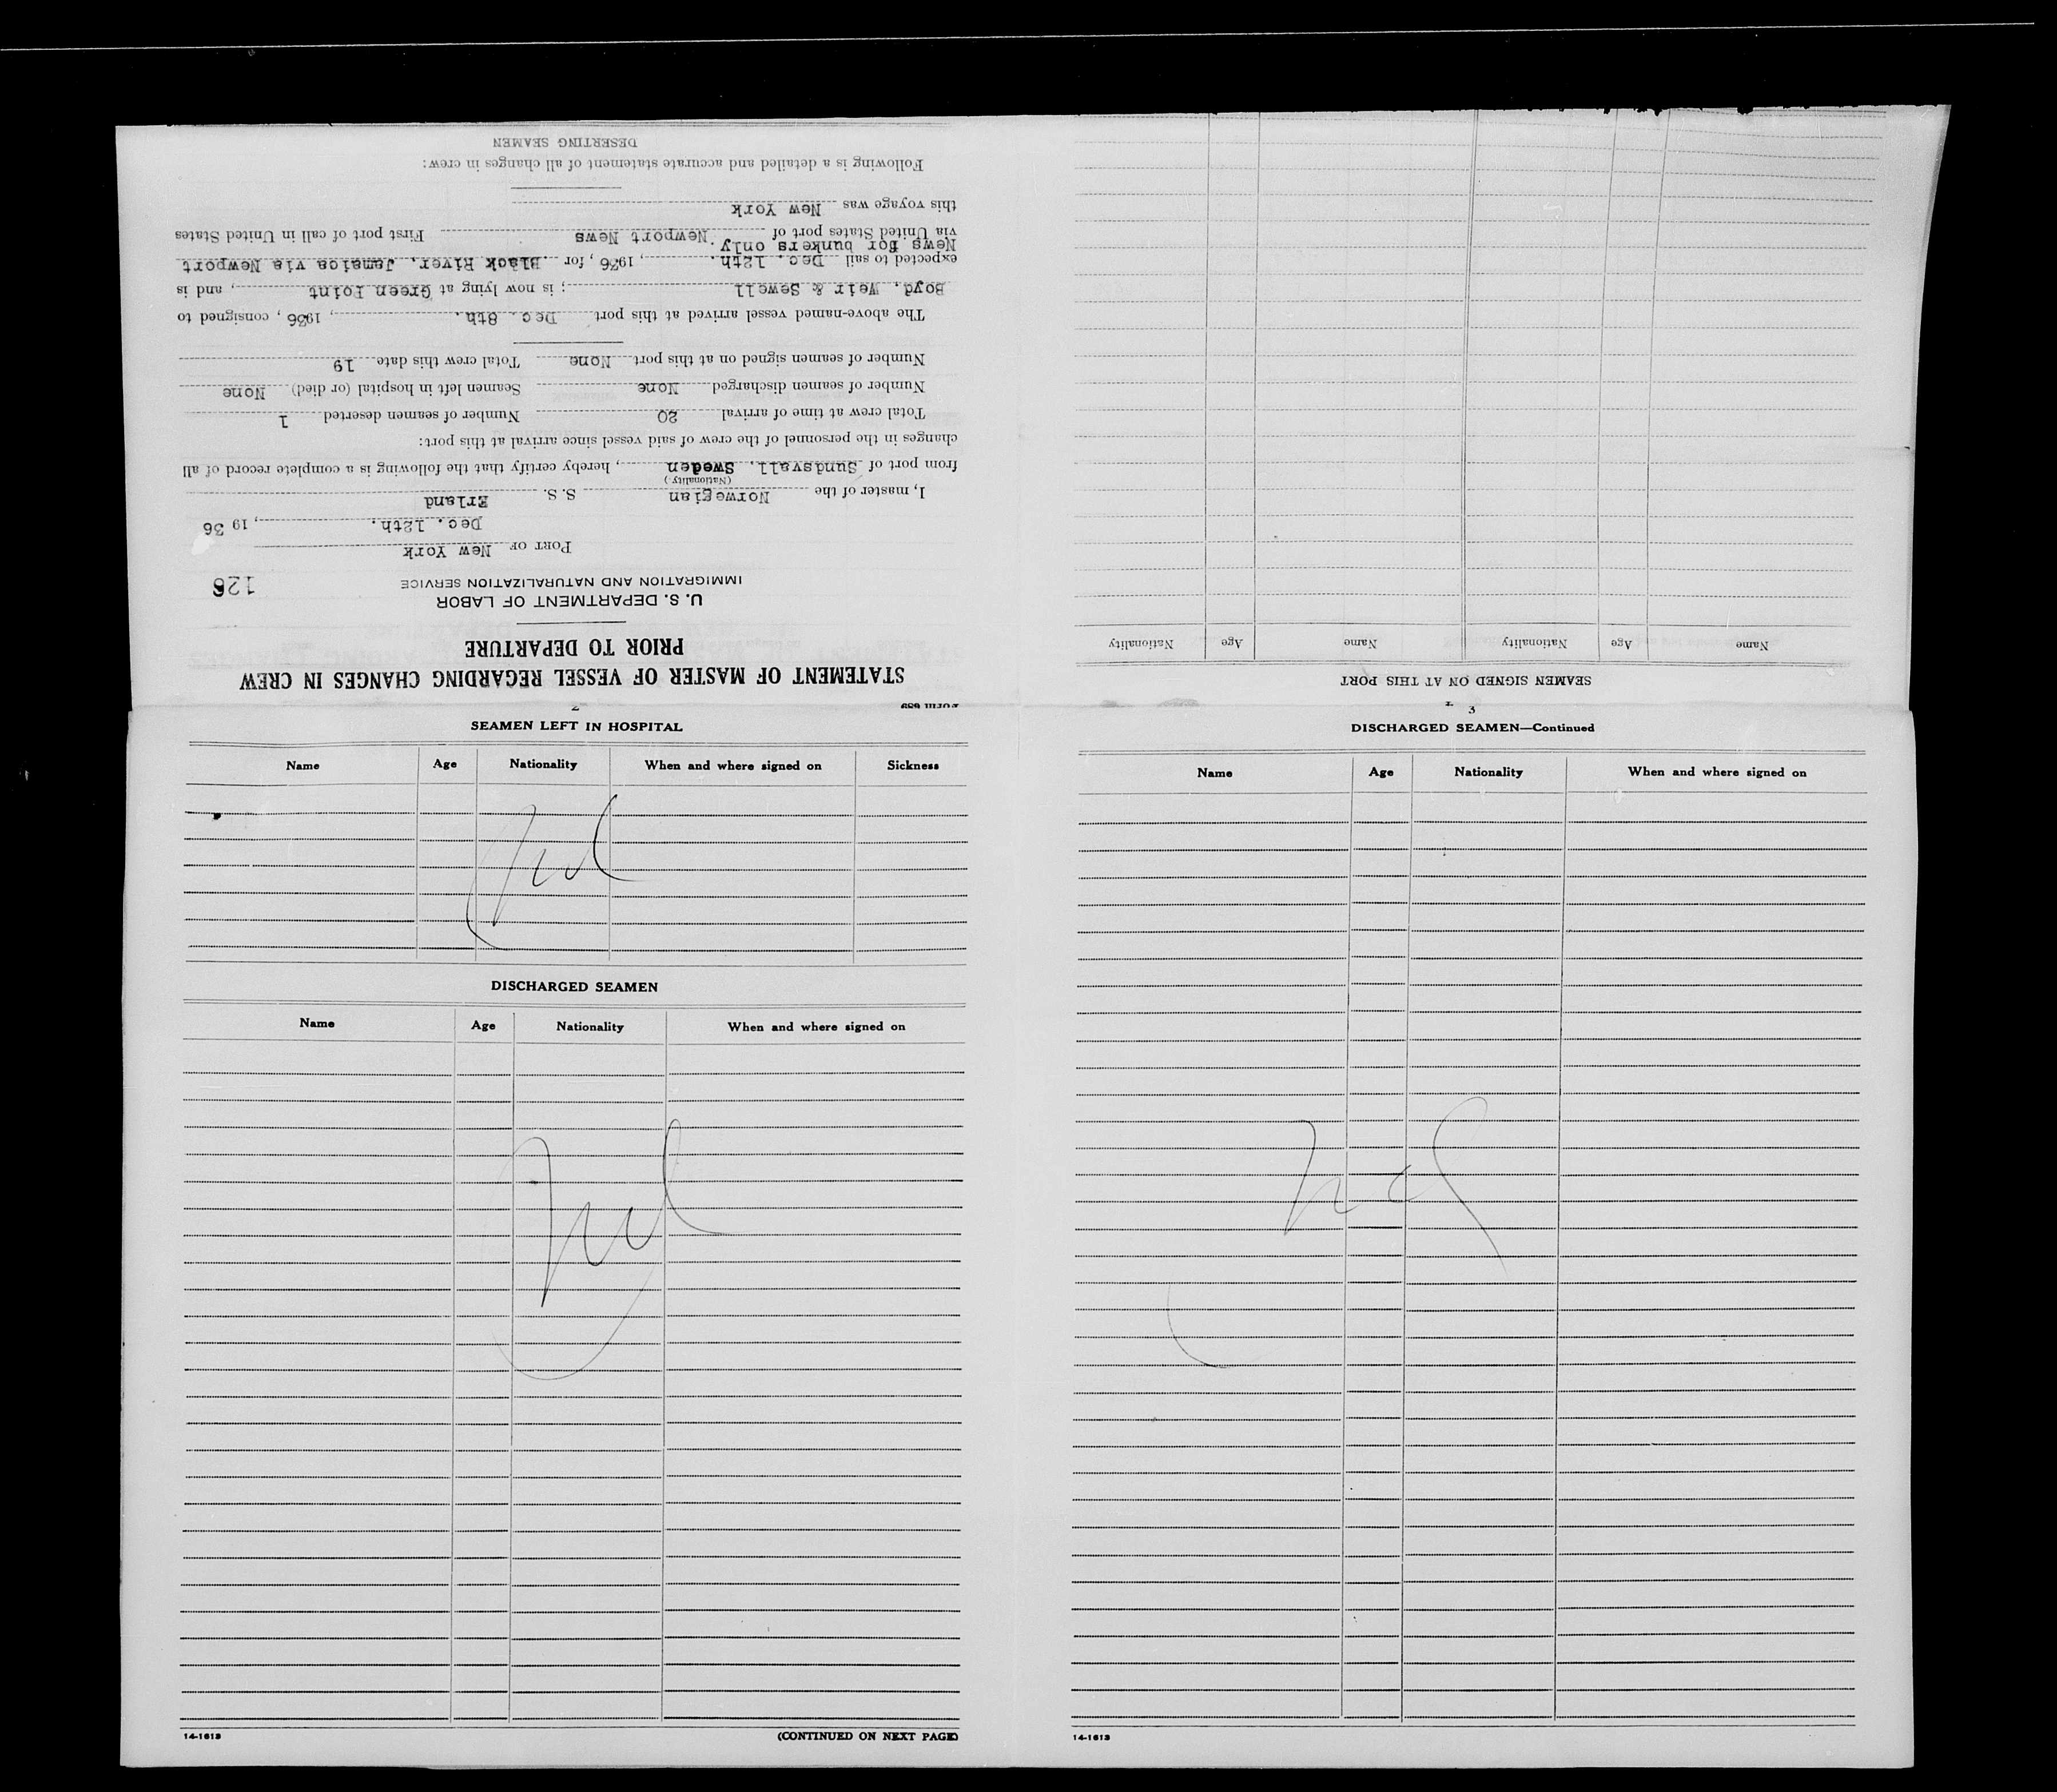 Form 689
STATEMENT OF MASTER OF VESSEL REGARDING CHANGES IN CREW
PRIOR TO DEPARTURE
U. S. DEPARTMENT OF LABOR
IMMIGRATION AND NATURALIZATION SERVICE
126
PORT OF New York
Dec. 12th. , 19 36
I, master of the Norwegian S. S. Erland
(Nationality)
from port of Sundsvall. Sweden , hereby certify that the following is a complete record of all
changes in the personnel of the crew of said vessel since arrival at this port:
Total crew at time of arrival 20 Number of seamen deserted 1
Number of seamen discharged None Seamen left in hospital (or died) None
Number of seamen signed on at this port None Total crew this date 19
The above-named vessel arrived at this port Dec. 8th. , 1936 , consigned to
Boyd, Weir & Sewell ; is now lying at Green Point , and is
expected to sail Dec. 12th. , 1936 , for Black River, Jamaica via Newport
News for bunkers only.
via United States port of Newport News First port of call in United States
this voyage was New York
Following is a detailed and accurate statement of all changes in crew:
DESERTING SEAMEN
SEAMEN SIGNED ON AT THIS PORT
Name Age Nationality Name Age Nationality
2
SEAMEN LEFT IN HOSPITAL
Name Age Nationality When and where signed on Sickness
DISCHARGED SEAMEN
Name Age Nationality When and where signed on
14-1613 (CONTINUED ON NEXT PAGE)
3
DISCHARGED SEAMEN—Continued
Name Age Nationality When and where signed on
14-1613